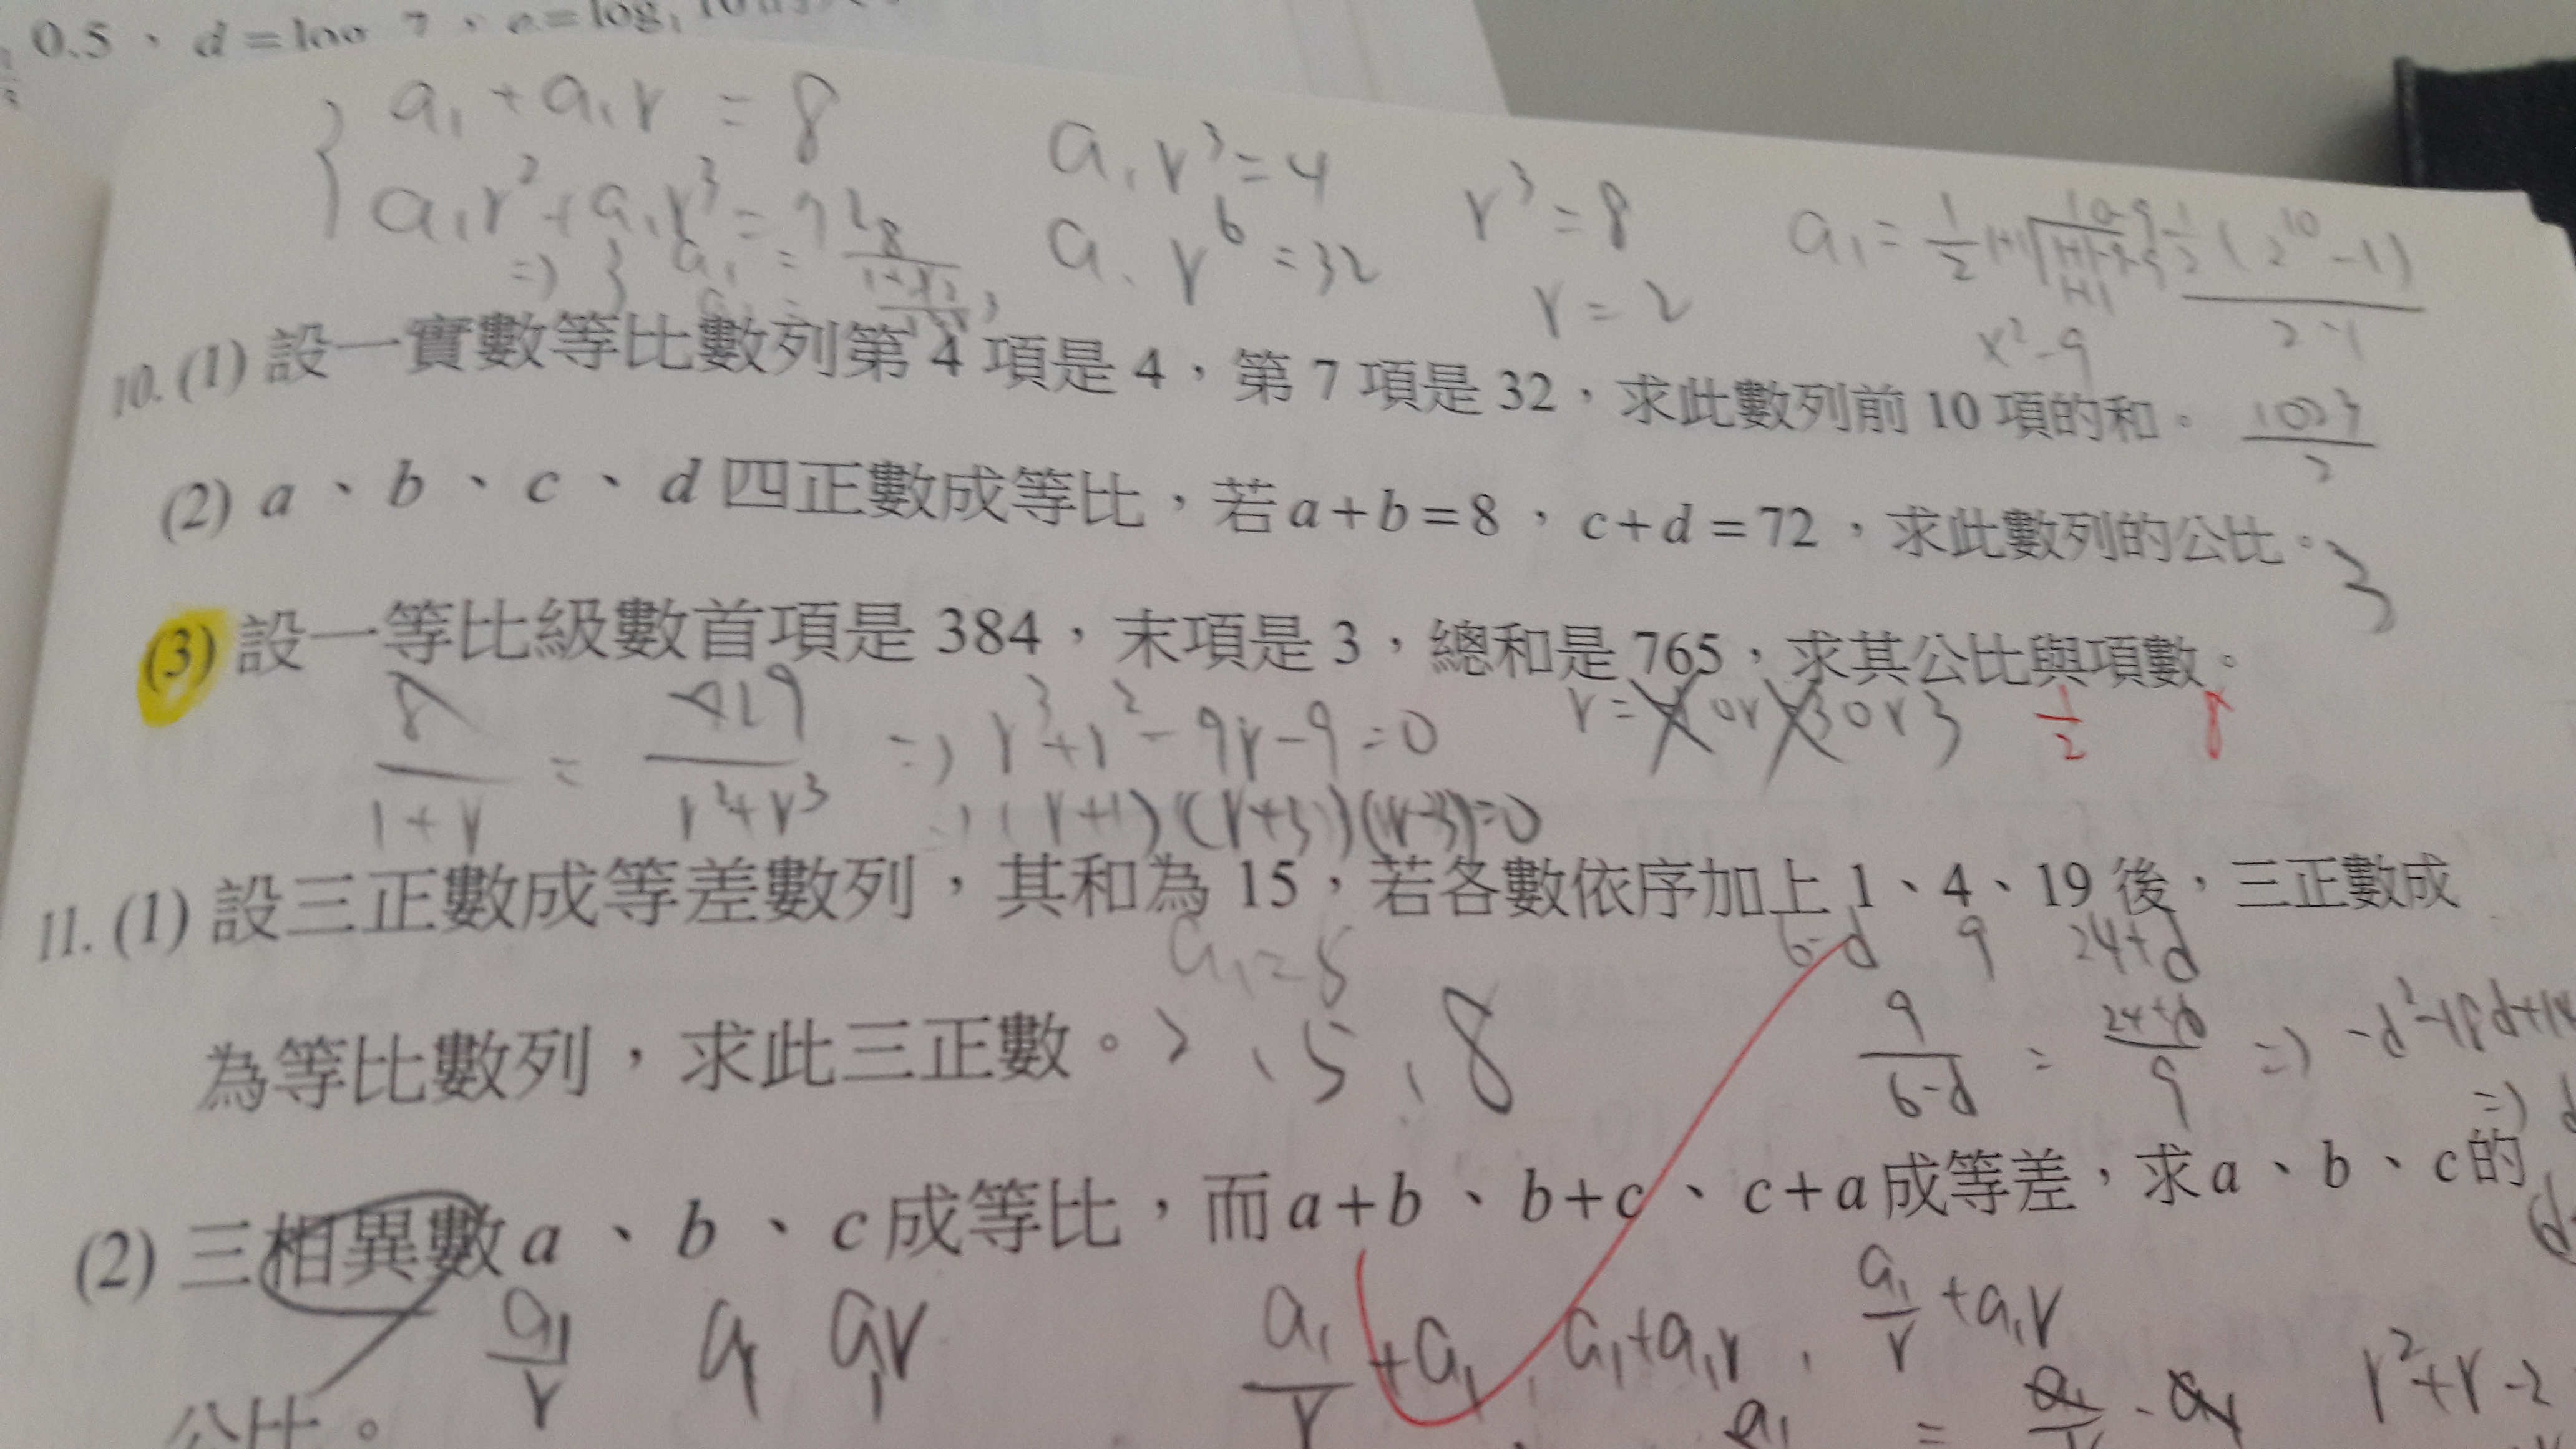 0.5、d=log 7、e=log
a₁+a₁r=8
a₁r²+a₁r³=72
a₁r³=4
a₁r⁶=32
r³=8
r=2
a₁=1/2
1/2(2¹⁰-1)/2-1
x²-9
1023/2
10.(1) 設一實數等比數列第 4 項是 4，第 7 項是 32，求此數列前 10 項的和。
(2) a、b、c、d 四正數成等比，若 a+b=8，c+d=72，求此數列的公比。3
(3) 設一等比級數首項是 384，末項是 3，總和是 765，求其公比與項數。
1/2 8
8/1+r = /r²+r³ => r³+r²-9r-9=0
=>(r+1)(r+3)(r-3)=0
11.(1) 設三正數成等差數列，其和為 15，若各數依序加上 1、4、19 後，三正數成
a₁=5
6-d 9 24+d
為等比數列，求此三正數。2,5,8
9/6-d = 24+d/9 => -d²-18d+
(2) 三相異數 a、b、c 成等比，而 a+b、b+c、c+a 成等差，求 a、b、c 的
a₁/r a₁ a₁r
a₁/r+a₁, a₁+a₁r, a₁/r+a₁r
r²+r-2
公比。